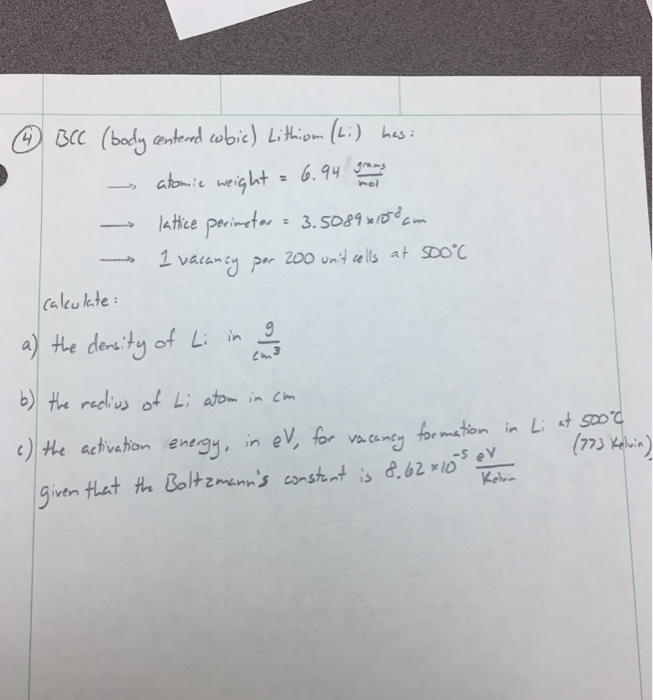 ④ BCC (body centered cubic) Lithium (Li) has:
→ atomic weight = 6.94 grams/mol
→ lattice perimeter = 3.5089 x 10⁻⁸ cm
→ 1 vacancy per 200 unit cells at 500°C
Calculate:
a) the density of Li in g/cm³
b) the radius of Li atom in cm
c) the activation energy, in eV, for vacancy formation in Li at 500°C
(773 Kelvin)
given that the Boltzmann's constant is 8.62 x 10⁻⁵ eV/Kelvin